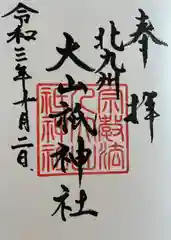 奉拝
北九州
大山祇神社
令和三年十月二日